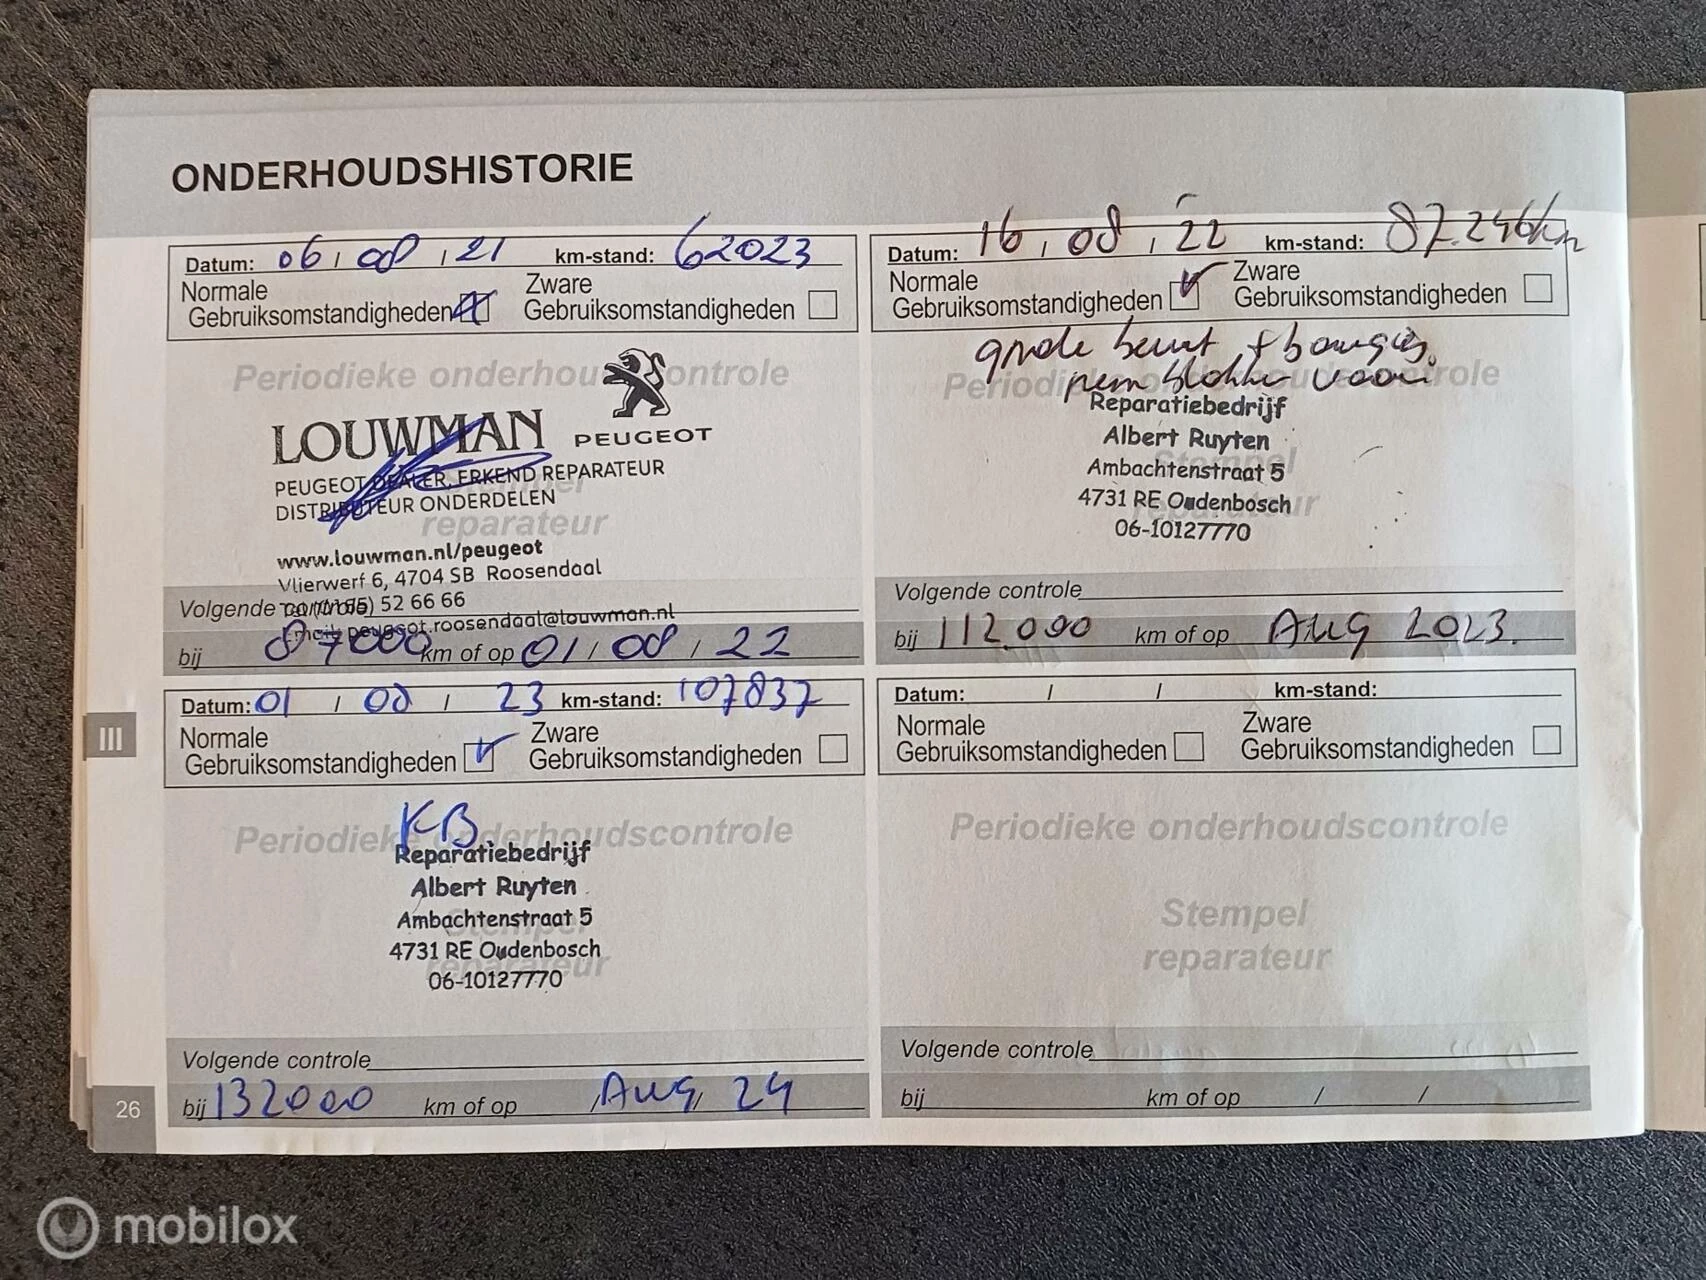 ONDERHOUDSHISTORIE
Datum: 06 / 08 / 21 km-stand: 62023
Normale Zware
Gebruiksomstandigheden Gebruiksomstandigheden
Periodieke onderhoudscontrole
LOUWMAN PEUGEOT
PEUGEOT DEALER, ERKEND REPARATEUR
DISTRIBUTEUR ONDERDELEN
reparateur
www.louwman.nl/peugeot
Vlierwerf 6, 4704 SB Roosendaal
Volgende controle
Tel. (0165) 52 66 66
Email: peugeot.roosendaal@louwman.nl
bij 87000 km of op 01 / 08 / 22
Datum: 16 / 08 / 22 km-stand: 87.246km
Normale Zware
Gebruiksomstandigheden Gebruiksomstandigheden
grote beurt + bougies
remblokken voor
Periodieke onderhoudscontrole
Reparatiebedrijf
Albert Ruyten
Stempel
Ambachtenstraat 5
4731 RE Oudenbosch
reparateur
06-10127770
Volgende controle
bij 112.000 km of op Aug 2023.
III
Datum: 01 / 08 / 23 km-stand: 107837
Normale Zware
Gebruiksomstandigheden Gebruiksomstandigheden
KB
Periodieke onderhoudscontrole
Reparatiebedrijf
Albert Ruyten
Ambachtenstraat 5
Stempel
4731 RE Oudenbosch
reparateur
06-10127770
Volgende controle
bij 132000 km of op / Aug / 24
Datum: / / km-stand:
Normale Zware
Gebruiksomstandigheden Gebruiksomstandigheden
Periodieke onderhoudscontrole
Stempel
reparateur
Volgende controle
bij km of op / /
26
mobilox